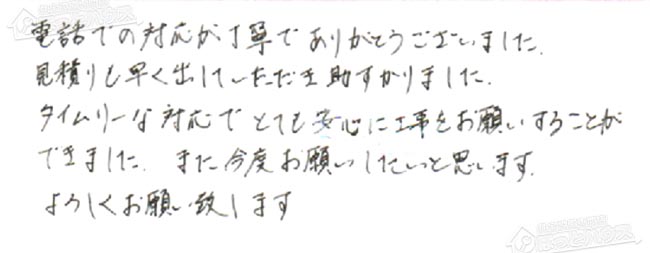 電話での対応が丁寧でありがとうございました.
見積りも早く出していただき助すかりました.
タイムリーな対応でとても安心に工事をお願いすることが
できました. また今度お願いしたいと思います.
よろしくお願い致します